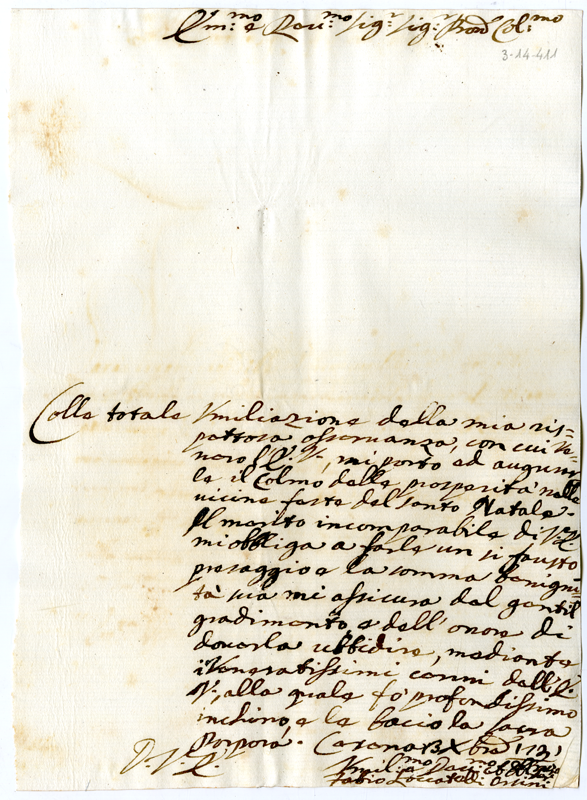 Em.mo e Rev.mo Sig.r Sig.r Pron Col.mo
3-14-411
Colla totale Umiliazione della mia ris=
pettosa osservanza, con cui ve=
nero l'E. V., mi porto ad augurar
le il Colmo delle prosperità nelle
vicine feste del Santo Natale.
Il merito incomparabile di V. E.
mi obbliga a farle un sì fausto
presaggio e la somma benigni=
tà sua mi assicura del gentil
gradimento e dell'onore di
doverla ubbidire, mediante
i Veneratissimi cenni dell'E.
V., alla quale fò profondissimo
inchino, e le bacio la sacra
Porpora. Cesena 13 Xbre
Umil.mo Dev.
Fabio Loccatelli Orsini